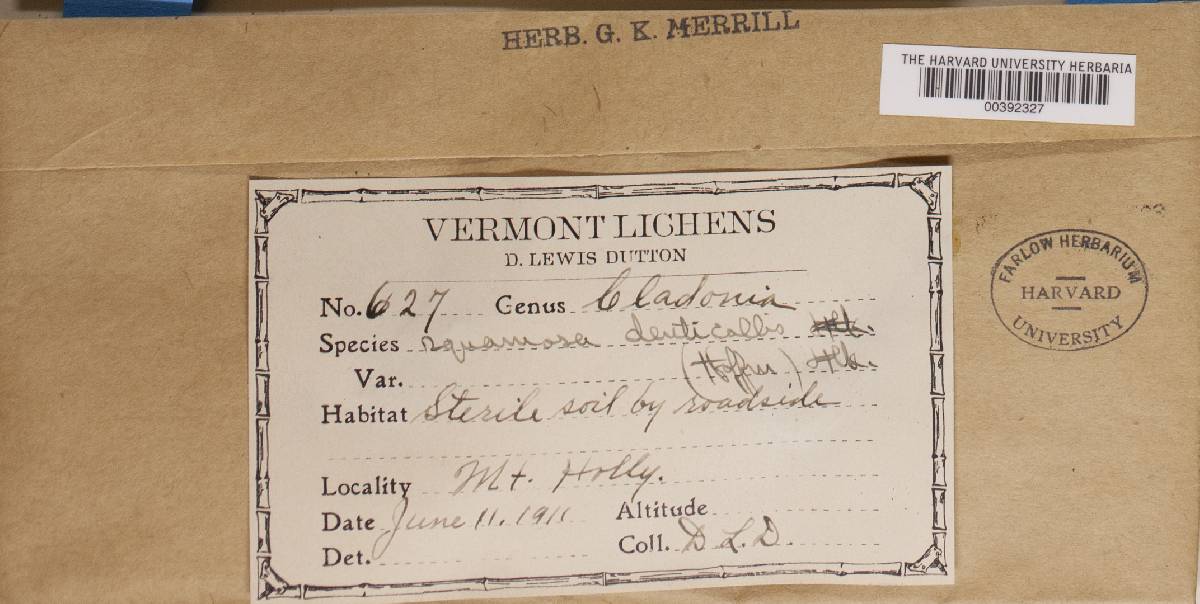 HERB. G. K. MERRILL
THE HARVARD UNIVERSITY HERBARIA
00392327
VERMONT LICHENS
D. LEWIS DUTTON
No. 627 Genus Cladonia
Species squamosa denticollis
Var. (Hoffm) Flk.
Habitat Sterile soil by roadside
Locality Mt. Holly.
Date June 11. 1911 Altitude
Det. Coll. D L D.
FARLOW HERBARIUM
HARVARD
UNIVERSITY